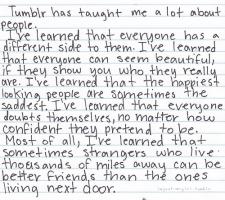 Tumblr has taught me a lot about
people.
I've learned that everyone has a
different side to them. I've learned
that everyone can seem beautiful,
if they show you who they really
are. I've learned that the happiest
looking people are sometimes the
saddest. I've learned that everyone
doubts themselves, no matter how
confident they pretend to be.
Most of all, I've learned that
sometimes strangers who live
thousands of miles away can be
better friends than the ones
living next door.